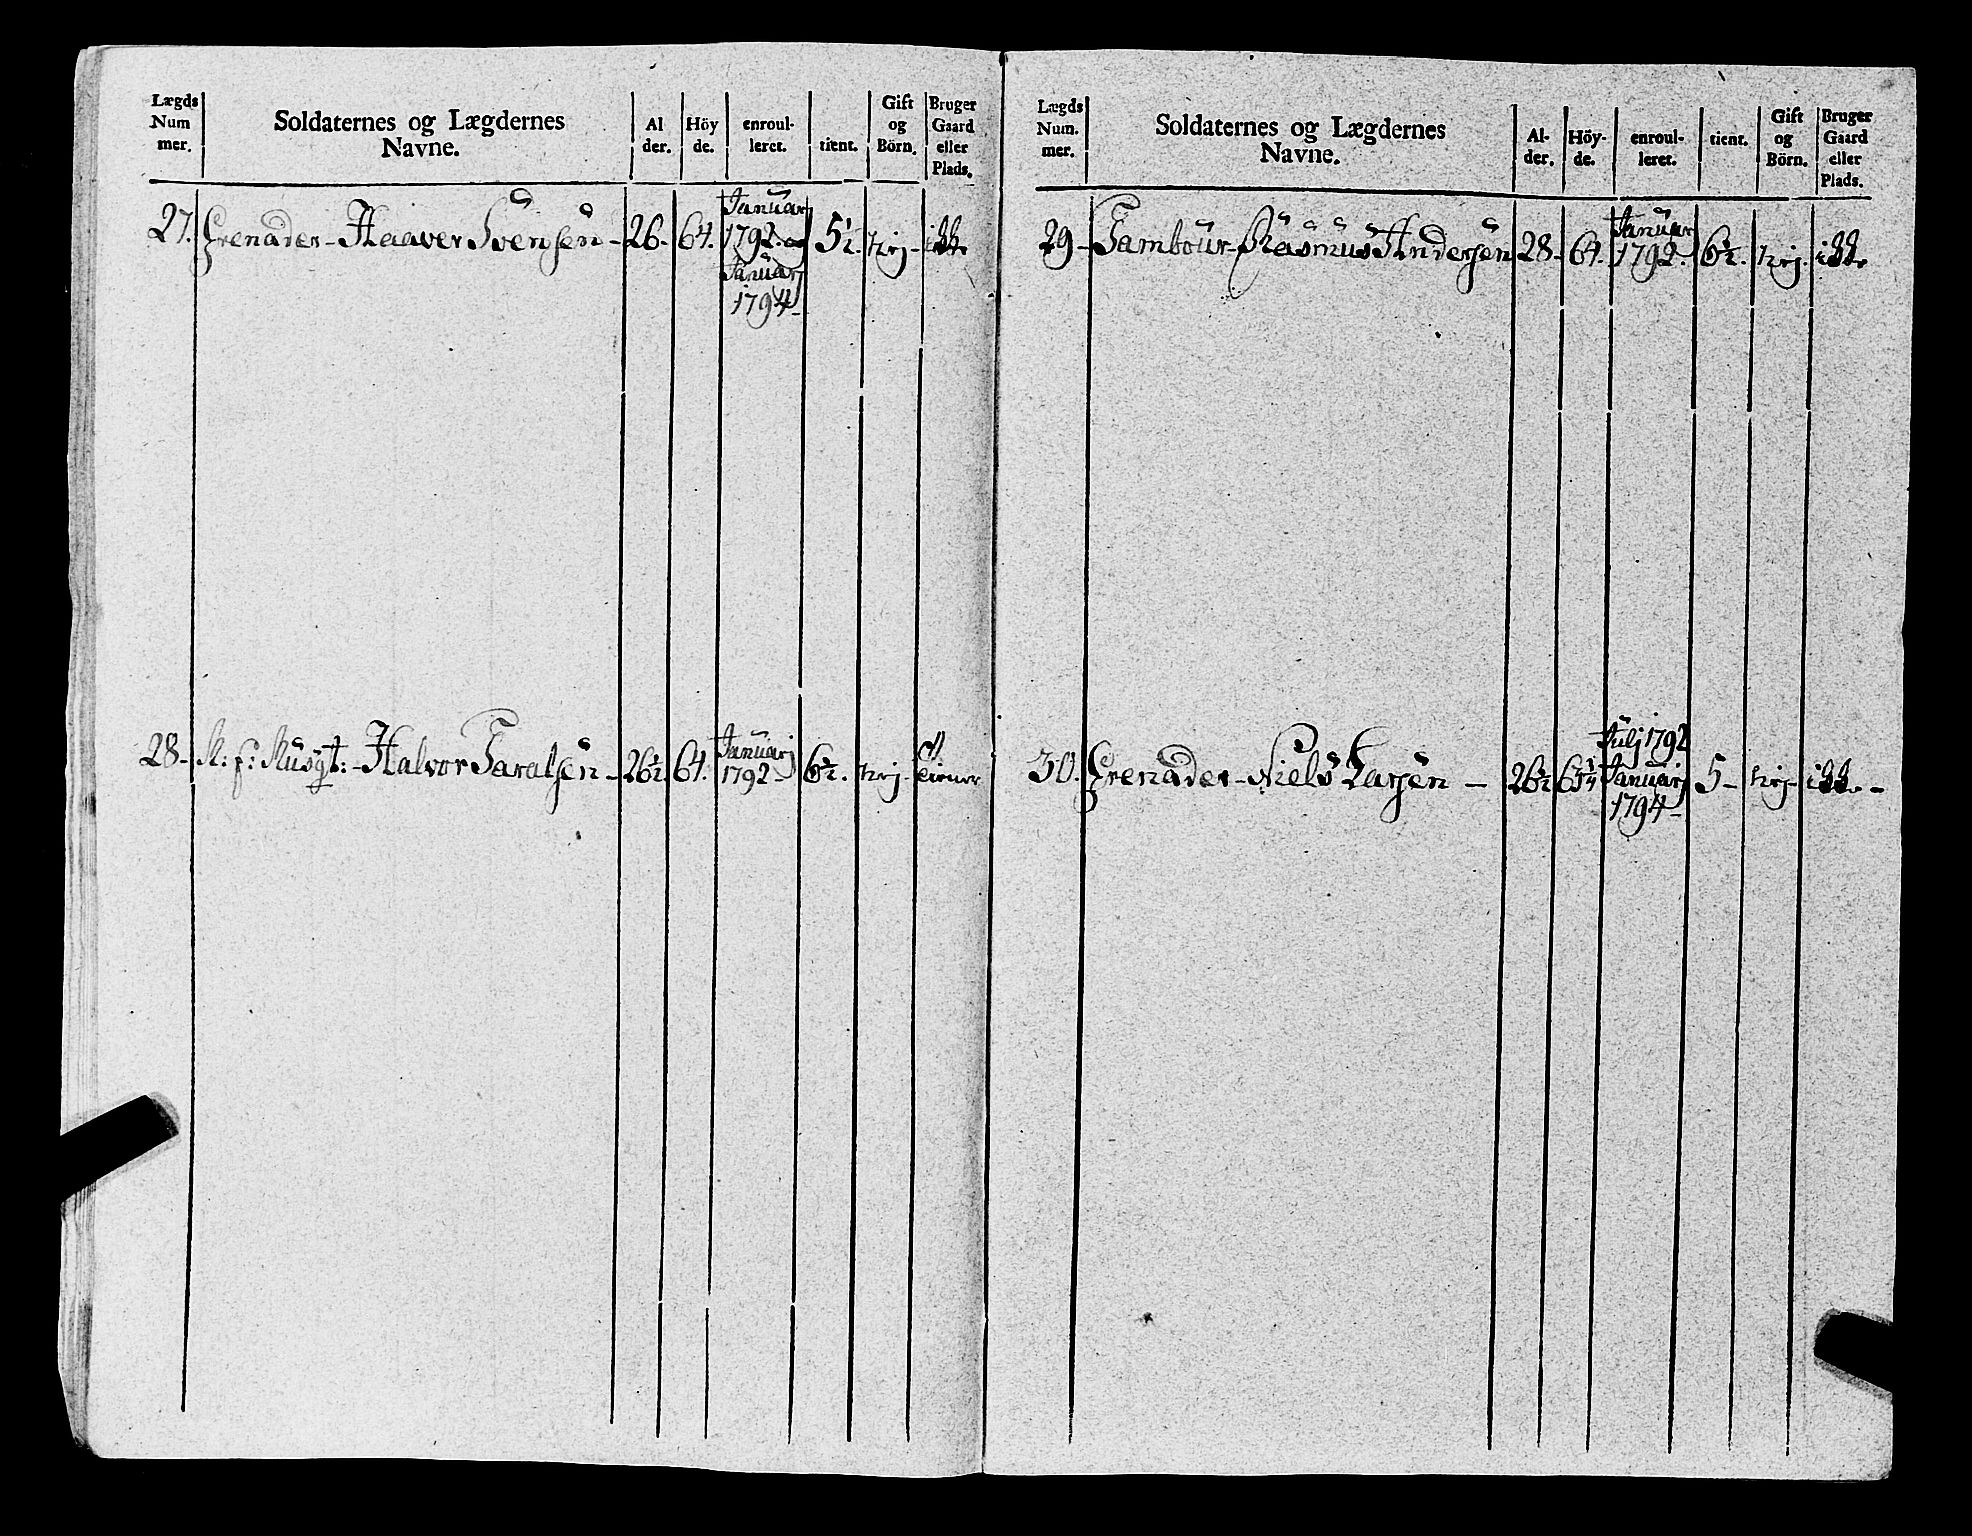 Lægds Num mer. Soldaternes og Lægdernes Navne. Al der. Höy de. enroul- leret. tient. Gift og Börn. Bruger Gaard eller Plads.
27. Grenader - Haaver Svensen - 26. 64. Januar 1792. og Januarj 1794 - 5½. nej - ikke
28 - Halvor Taralsen - 26½. 64. Januarj 1792 6½. nej -
Lægds Num. mer. Soldaternes og Lægdernes Navne. Al- der. Höy- de. enroul- leret. tient. Gift og Börn. Bruger Gaard eller Plads.
29 - Tambour - Rasmus Andersen 28 - 64. Januar 1792. 6½. nej. ikke
30. Grenader - Niels Larsen - 26½ 65¼ Julj 1792 Januarj 1794 - 5 - nej - ikke -